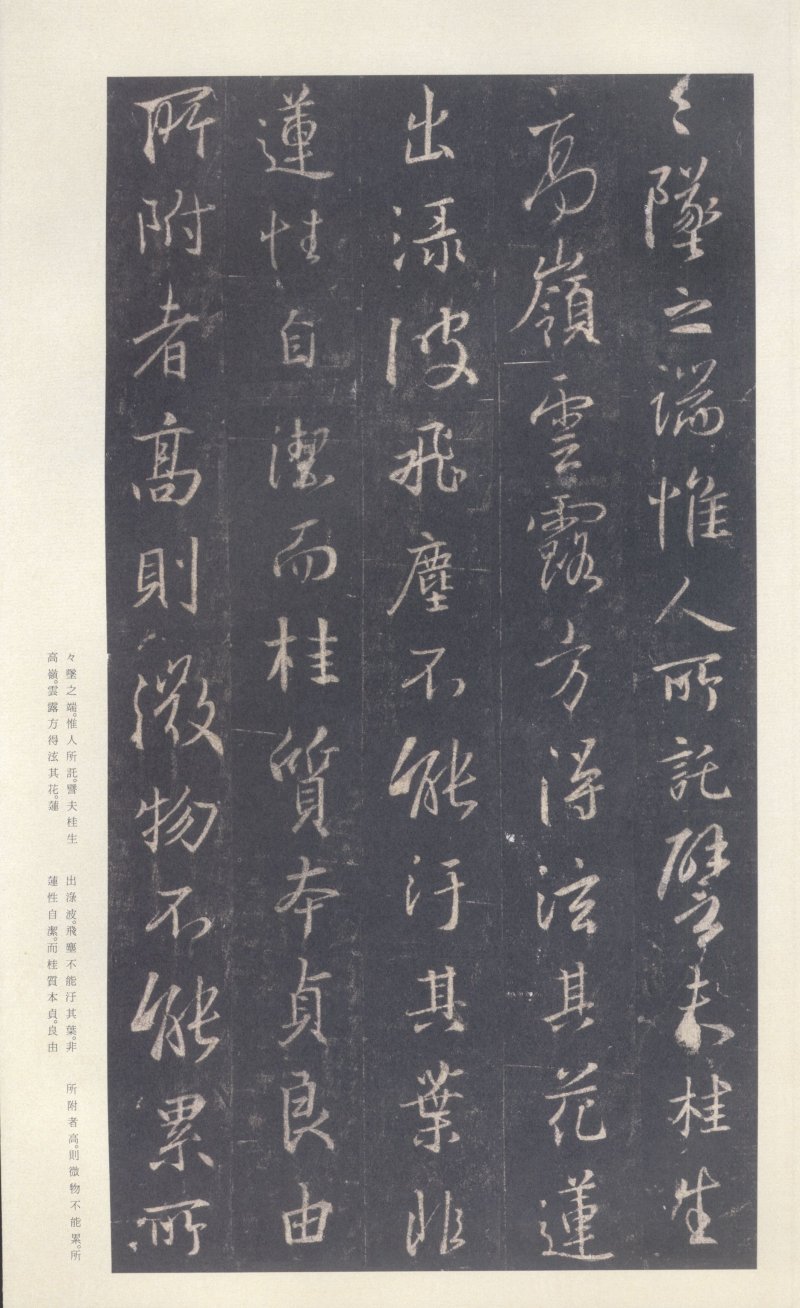 々墜之端惟人所託譬夫桂生
高嶺雲露方得泫其花蓮
出淥波飛塵不能汙其葉非
蓮性自潔而桂質本貞良由
所附者高則微物不能累所
々墜之端。惟人所託。譬夫桂生
高嶺。雲露方得泫其花。蓮
出淥波。飛塵不能汙其葉。非
蓮性自潔。而桂質本貞。良由
所附者高。則微物不能累。所